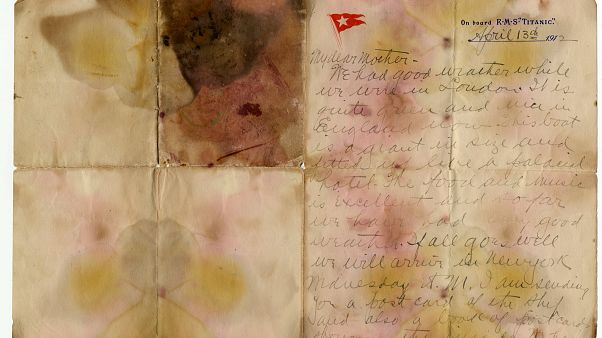 On board R·M·S "TITANIC".
April 13th 1912
My dear Mother-
We had good weather while
we were in London. It is
quite green and nice in
England now. This boat
is a giant in size and
fitted up like a palacial
hotel. The food and music
is excellent and so far
we have had very good
weather. If all goes well
we will arrive in New York
Wednesday A.M. I am sending
you a post card of the ship
and also a book of post cards